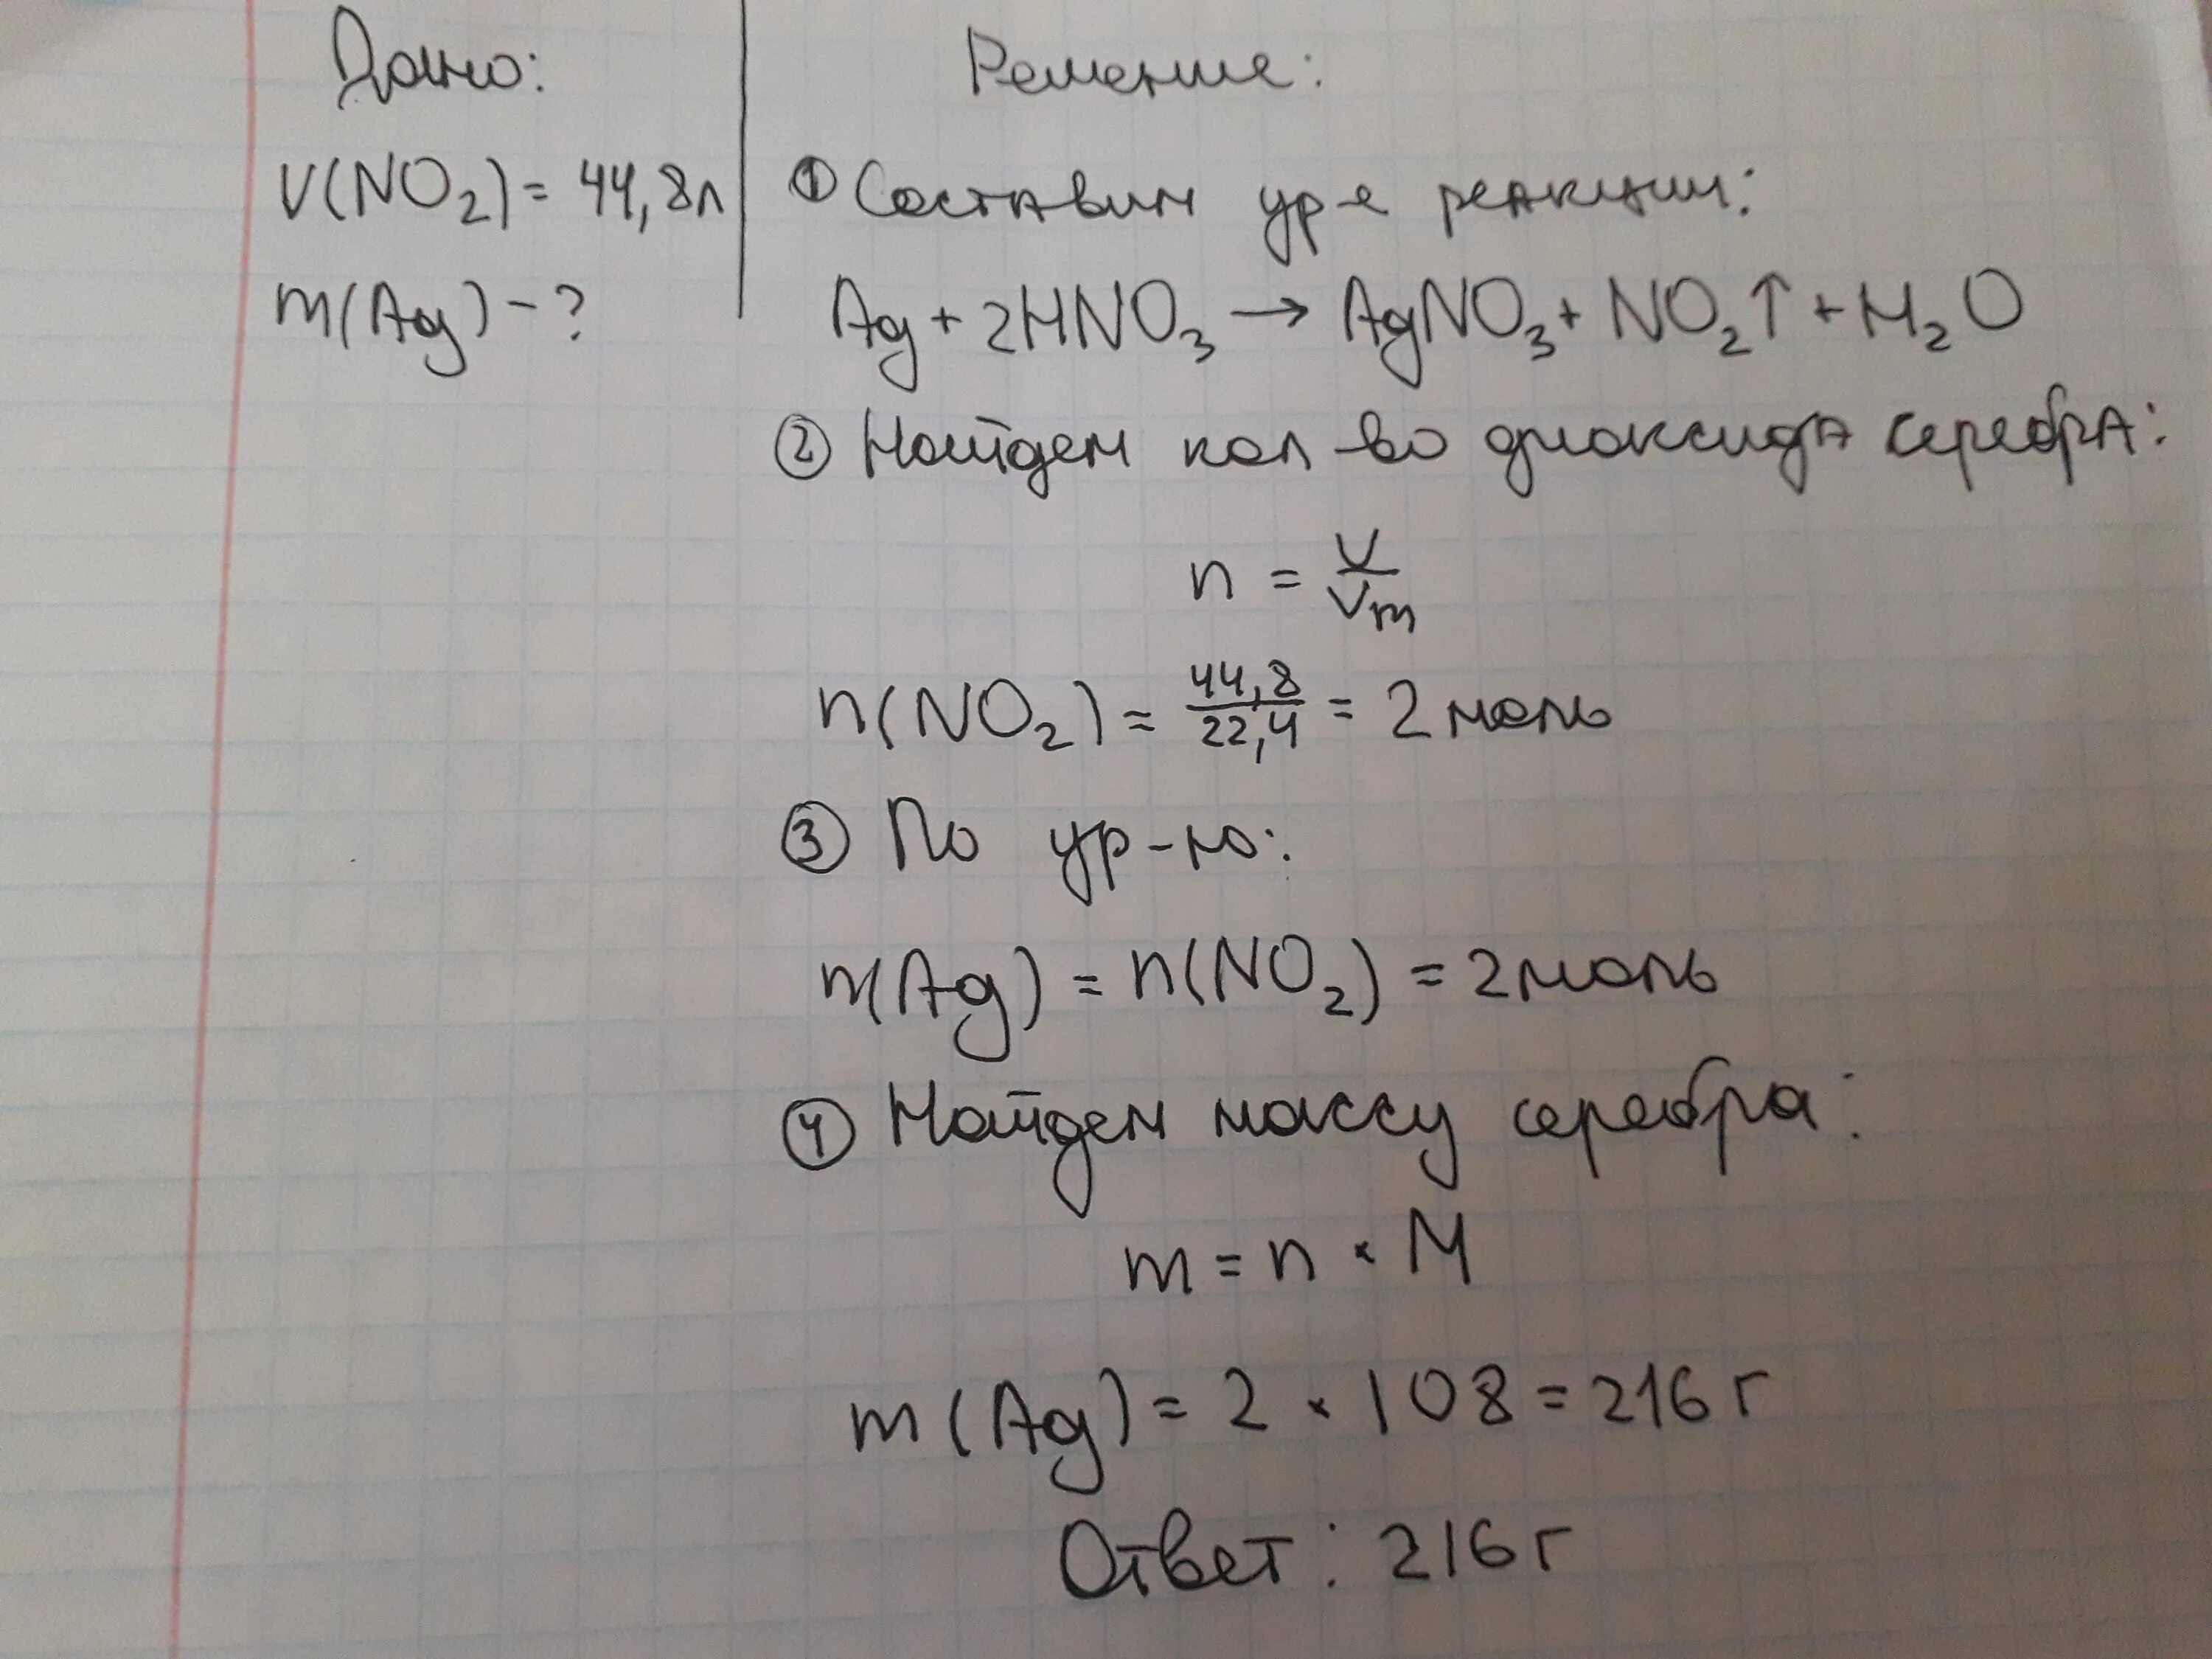 Дано:
V(NO₂) = 44,8л
m(Ag) - ?
Решение:
① Составим ур-е реакции:
Ag + 2HNO₃ → AgNO₃ + NO₂↑ + H₂O
② Найдем кол-во диоксида серебра:
n = V/Vm
n(NO₂) = 44,8/22,4 = 2 моль
③ По ур-ю:
n(Ag) = n(NO₂) = 2 моль
④ Найдем массу серебра:
m = n × M
m(Ag) = 2 × 108 = 216 г
Ответ: 216 г